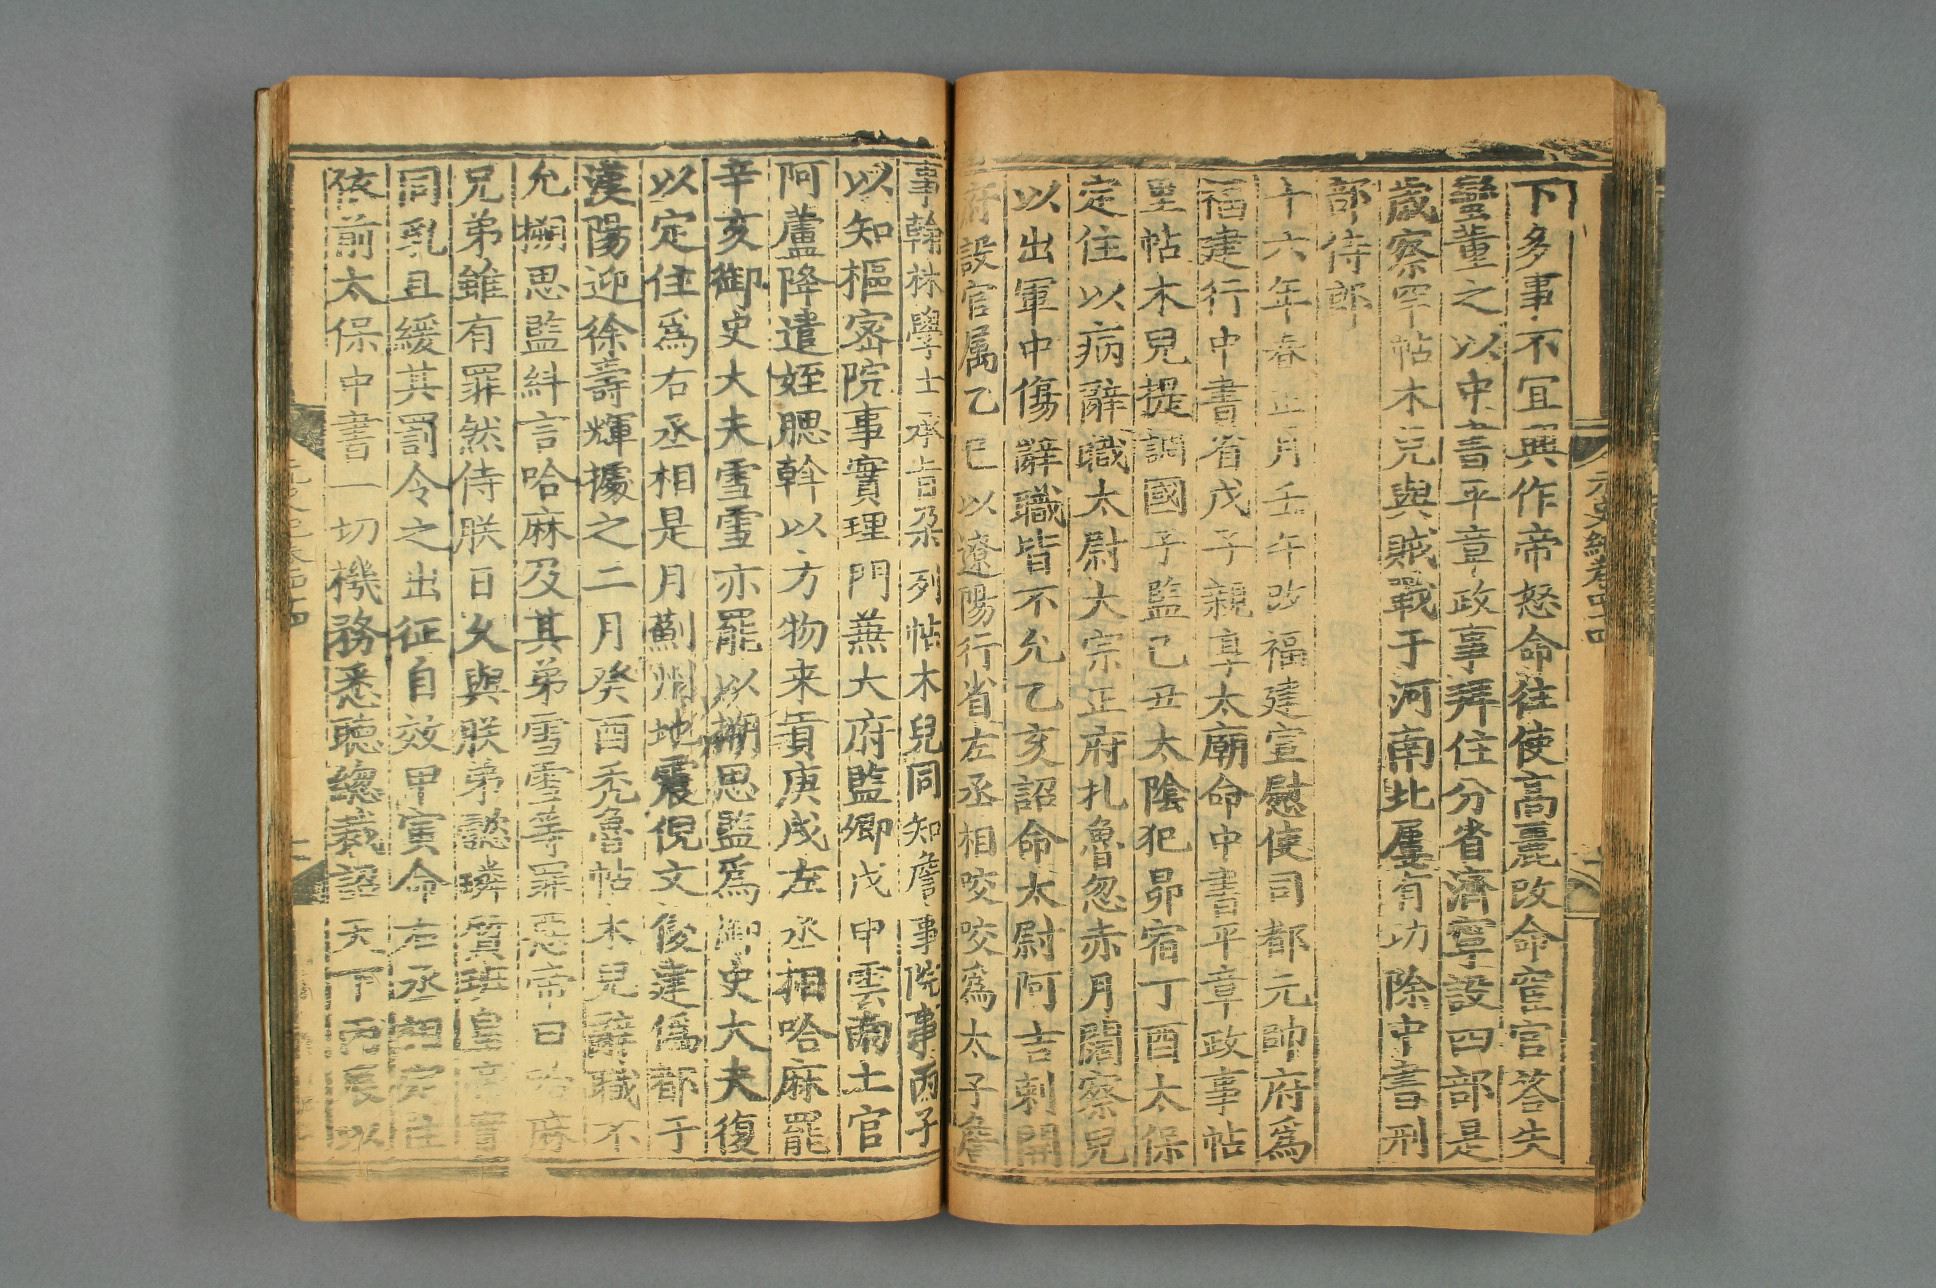 下多事不宜興作帝怒命往使高麗改命宦官答失
蠻董之以中書平章政事拜住分省濟寧設四部是
歳察罕帖木兒與賊戰于河南北屢有功除中書刑
部侍郎
十六年春正月壬午改福建宣慰使司都元帥府爲
福建行中書省戊子親享太廟命中書平章政事帖
里帖木兒提調國子監己丑太陰犯昴宿丁酉太保
定住以病辭職太尉大宗正府扎魯忽赤月闊察兒
以出軍中傷辭職皆不允乙亥詔命太尉阿吉剌開
府設官属乙巳以遼陽行省左丞相咬咬爲太子詹
事翰林學士承旨朶列帖木兒同知詹事院事丙子
以知樞密院事實理門兼大府監卿戊申雲南土官
阿蘆降遣姪腮斡以方物来貢庚戌左丞相哈麻罷
辛亥御史大夫雪雪亦罷以搠思監爲御史大夫復
以定住爲右丞相是月薊州地震倪文俊建僞都于
漢陽迎徐壽輝據之二月癸酉禿魯帖木兒辭職不
允搠思監糾言哈麻及其弟雪雪等罪惡帝曰哈麻
兄弟雖有罪然侍朕日久與朕弟懿璘質班皇帝實
同乳且緩其罰令之出征自效甲寅命右丞相定住
依前太保中書一切機務悉聽總裁詔天下丙辰以
元史紀卷四十四